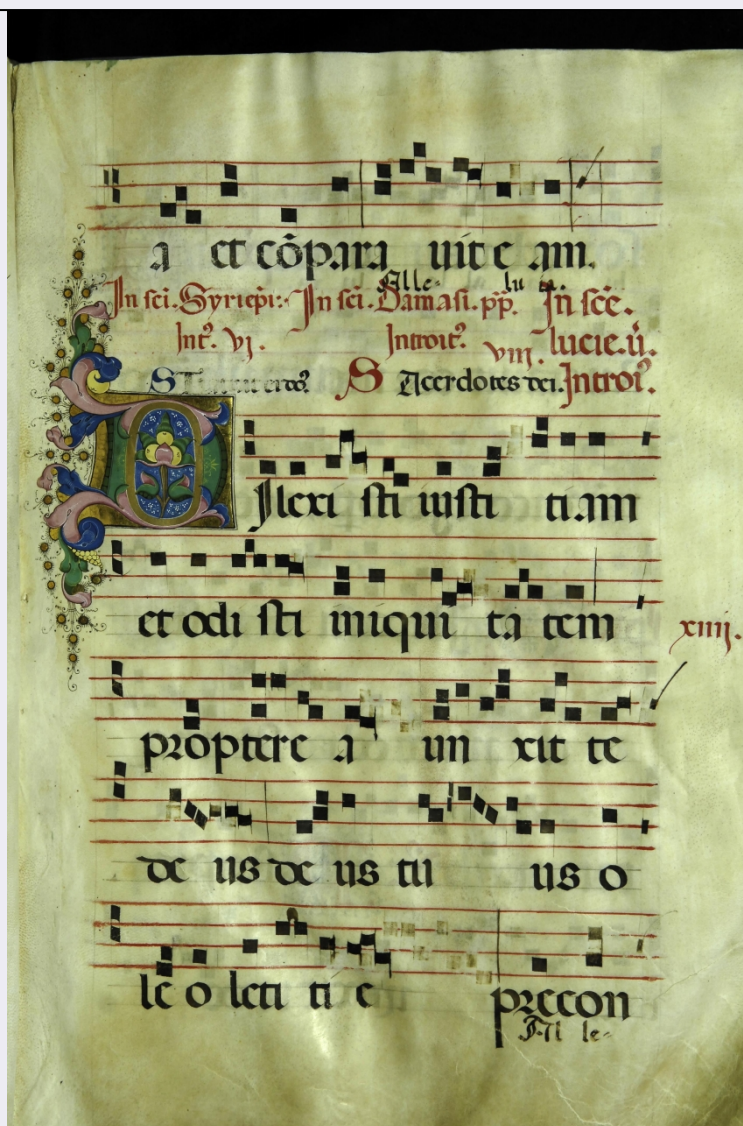 a et cōpara uit e am.
Alle- lu ia.
In sci. Syri epi: In sci. Damasi. pp. In scē.
Int? vj. Introit? viii. lucie. ū.
S Acerdotes dei. Introi?.
DIlexi sti iusti tiam
et odi sti iniqui ta tem
xiiij.
proptere a un xit te
de us de us tu us o
le o leti ti e precon
Al le-